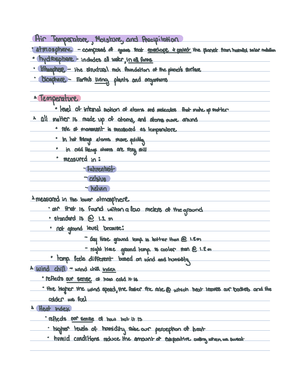 Air Temperature, Moisture, and Precipitation
atmosphere - composed of gases that envelope & protect the planet from harmful solar radiation
hydrosphere - includes all water, in all forms
lithosphere - the structural rock foundation of the planet's surface
biosphere - Earth's living plants and organisms
Temperature
level of internal motion of atoms and molecules that make up matter
2. all matter is made up of atoms, and atoms move around
rate of movement is measured as temperature
in hot things atoms move quickly
in cold things atoms are very still
measured in:
- fahrenheit
- celsius
- kelvin
measured in the lower atmosphere
air that is found within a few meters of the ground
standard is @ 1.2 m
not ground level because:
- day time ground temp is hotter than @ 1.2 m
- night time ground temp is cooler than @ 1.2 m
temp feels different based on wind and humidity
wind chill - wind chill index
reflects our sense of how cold it is
the higher the wind speed, the faster the rate @ which heat leaves our bodies and the
colder we feel
Heat index
reflects our sense of how hot it is
higher levels of humidity raise our perception of heat
humid conditions reduce the amount of evaporative cooling when we sweat